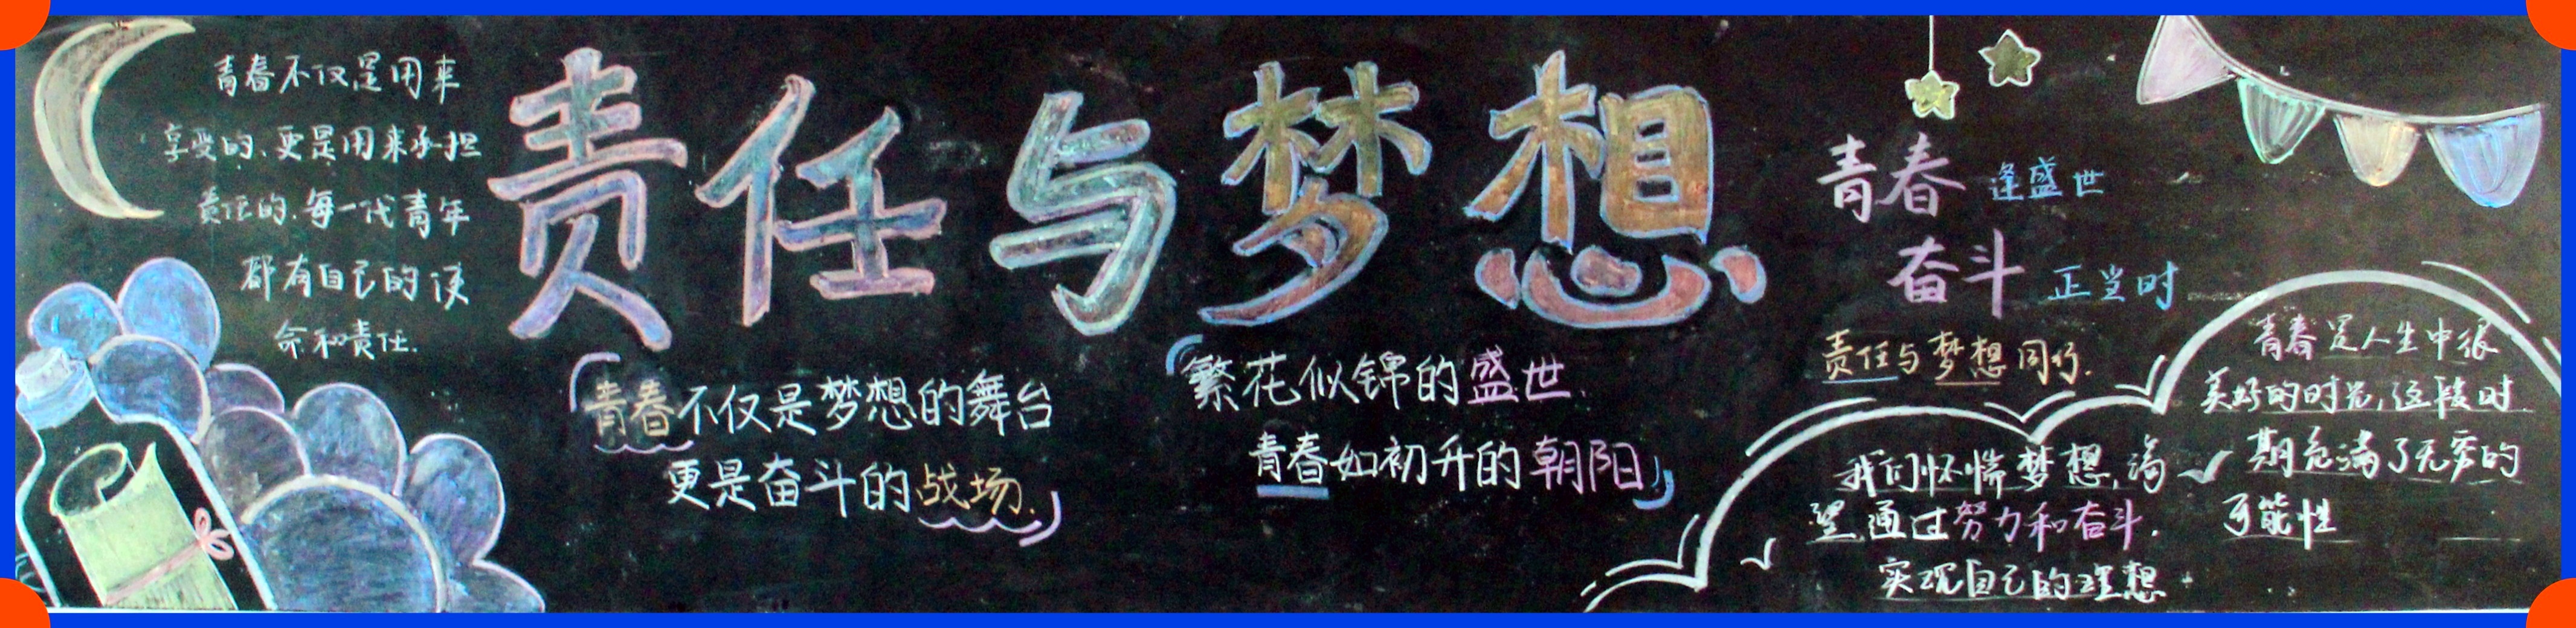 责任与梦想
青春不仅是用来
享受的、更是用来承担
责任的.每一代青年
都有自己的使
命和责任.
青春不仅是梦想的舞台
更是奋斗的战场.
繁花似锦的盛世.
青春如初升的朝阳
青春 逢盛世
奋斗 正当时
责任与梦想同行.
我们怀惴梦想,渴
望通过努力和奋斗.
实现自己的理想
青春是人生中很
美好的时光,这段时
期充满了无穷的
可能性